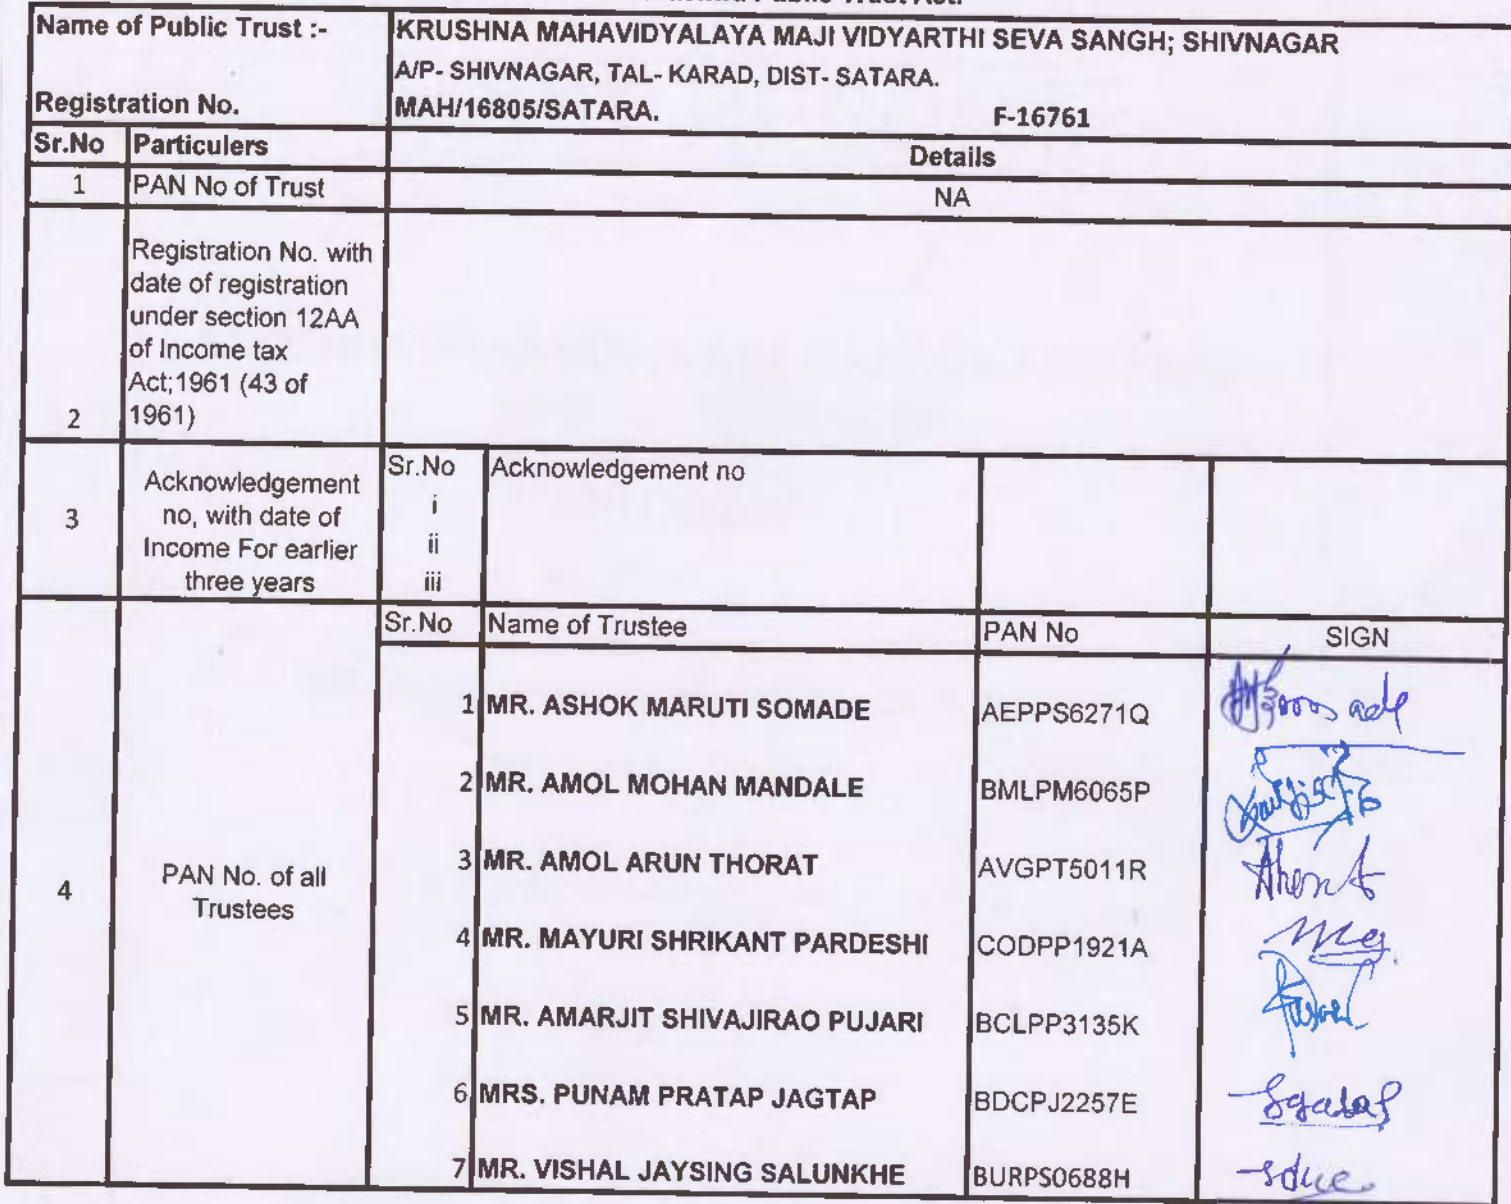 Public Trust Act.
Name of Public Trust :- KRUSHNA MAHAVIDYALAYA MAJI VIDYARTHI SEVA SANGH; SHIVNAGAR
A/P- SHIVNAGAR, TAL- KARAD, DIST- SATARA.
Registration No. MAH/16805/SATARA. F-16761
Sr.No Particulers Details
1 PAN No of Trust NA
Registration No. with
date of registration
under section 12AA
of Income tax
Act;1961 (43 of
2 1961)
Sr.No Acknowledgement no
3 Acknowledgement
no, with date of
Income For earlier
three years
i
ii
iii
Sr.No Name of Trustee PAN No SIGN
4 PAN No. of all
Trustees
1 MR. ASHOK MARUTI SOMADE AEPPS6271Q
2 MR. AMOL MOHAN MANDALE BMLPM6065P
3 MR. AMOL ARUN THORAT AVGPT5011R
4 MR. MAYURI SHRIKANT PARDESHI CODPP1921A
5 MR. AMARJIT SHIVAJIRAO PUJARI BCLPP3135K
6 MRS. PUNAM PRATAP JAGTAP BDCPJ2257E
7 MR. VISHAL JAYSING SALUNKHE BURPS0688H